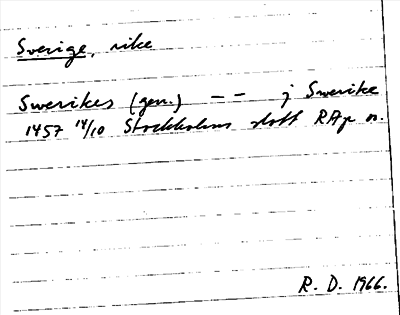 Sverige, rike
Swerikes (gen.) — — j Swerike
1457 14/10 Stockholms slott RAp or.
R. D. 1966.